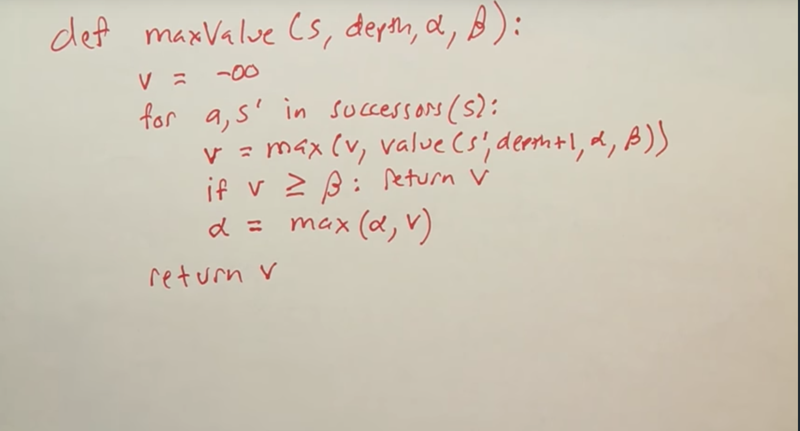 def maxValue (s, depth, α, β):
v = -∞
for a, s' in successors(s):
v = max(v, value(s', depth+1, α, β))
if v ≥ β: return v
α = max(α, v)
return v